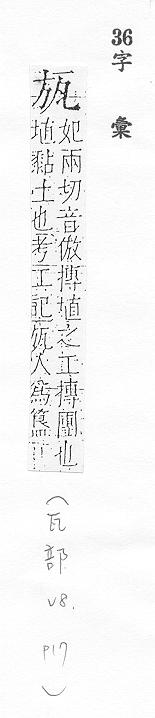 36字彙
瓬
妃兩切音倣摶埴之工摶團也
埴黏土也考工記瓬人爲簋
(瓦部 v8. p17)